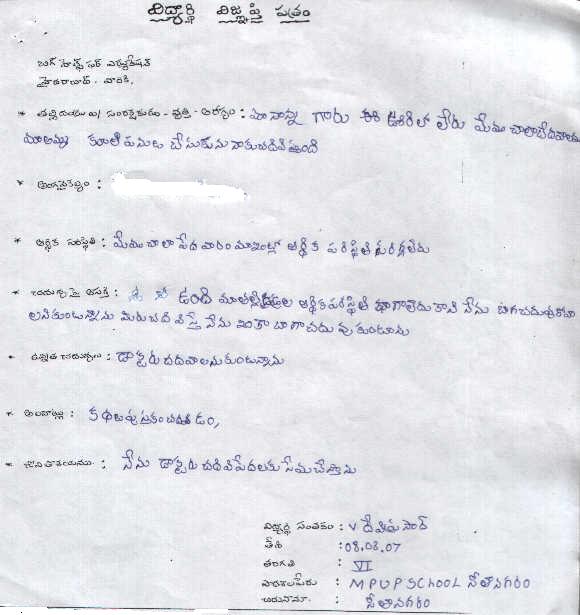 విద్యార్థి విజ్ఞప్తి పత్రం
హైదరాబాద్ - వారికి.
* తల్లిదండ్రులు/ సంరక్షకుడు - వృత్తి - ఆరోగ్యం : మా నాన్న గారు ఈ ఊరిలో లేరు మేము చాలా బేదవాలము
మా అమ్మ కూలి పనులు చేసుకును నాకు చదివిస్తుంది
* అంగవైకల్యం :
* ఆర్థిక పరిస్థితి : మేము చాలా పేదవారం మా ఇంట్లో ఆర్థిక పరిస్థితి సరిగ్గలేదు
* చదువుపై ఆసక్తి : ఉంది మా తల్లిదండ్రుల ఆర్థిక పరిస్థితి బాగాలేదు కాని నేను బాగ చదువుకోవా
లనికుంటున్నాను మీరు చదివిస్తే నేను ఇంకా బాగా చదువుకుంటాను
* ఉన్నత చదువులు : డాక్టరు చదవాలనుకుంటున్నాను
* అలవాట్లు : కథల పుస్తకం చదవడం,
* జీవితాశయము : నేను డాక్టరు చదివి పేదలకు సేవ చేస్తాను
విద్యార్థి సంతకం : V దేవి ప్రసాద్
తేది : 08.03.07
తరగతి : VI
పాఠశాల పేరు : M P U P SCHOOL సీతానగరం
చిరునామా : సీతానగరం